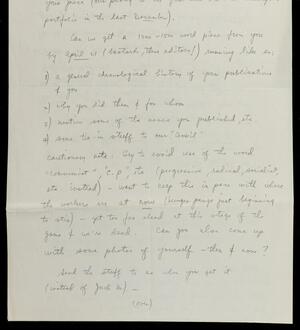 portfolio in the last December).
Can we get a 1000-1500 word piece from you
by April 1st (bastards, these editors!) running like so,
1) a general chronological history of your publications
& you
2) why you did them & for whom
3) mention some of the names you published, etc.
4) some tie-in stuff to our "Civil"
cautionary note: try to avoid use of the word
"communist", "C.P.", etc (progressive, radical, socialist,
etc instead) – want to keep this in pace with where
the workers are at now (hunger pangs just beginning
to stir) – get too far ahead at this stage of the
game & we're dead. Can you also come up
with some photos of yourself – then & now?
Send the stuff to me when you get it
(instead of Jack
(over)